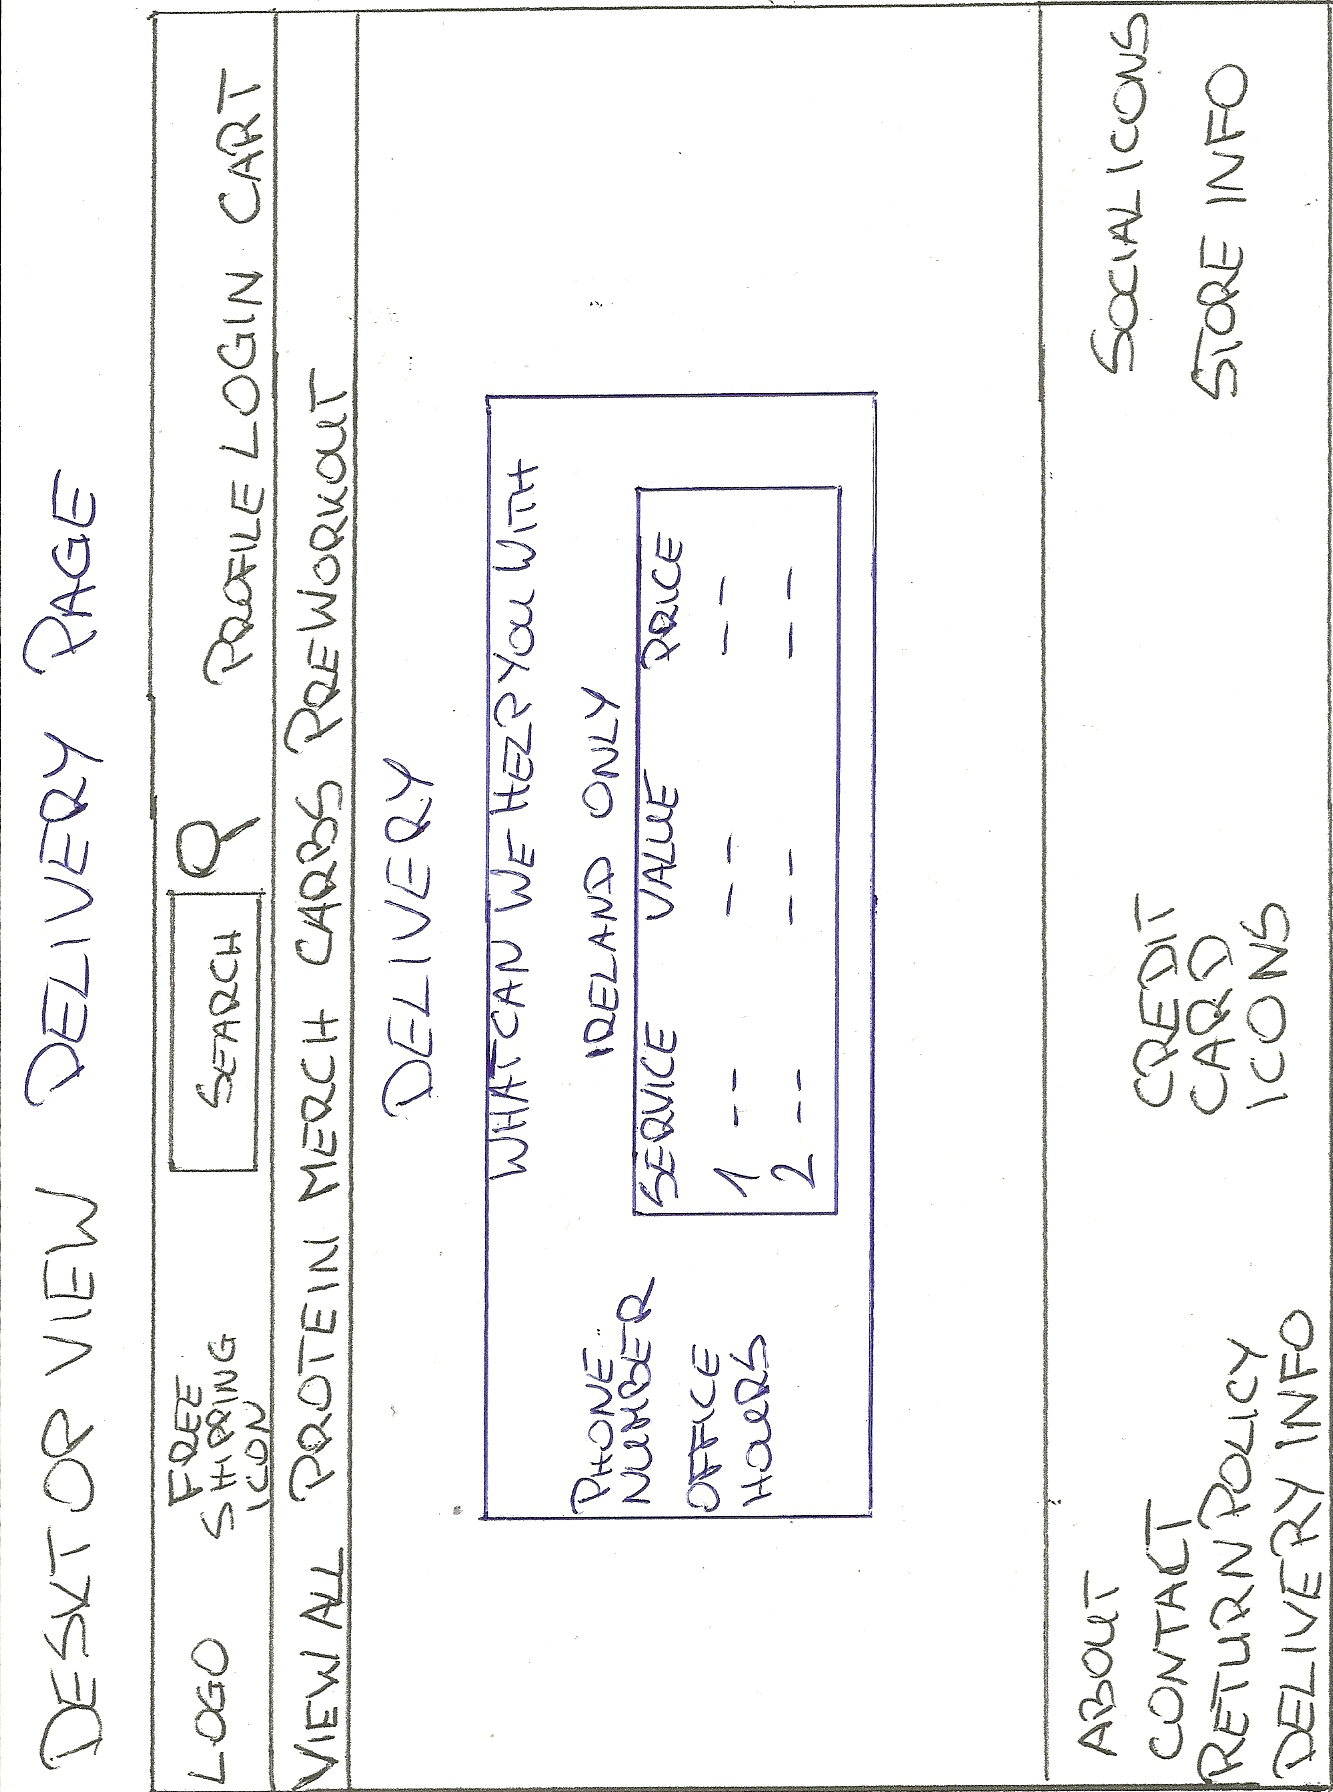 DESKTOP VIEW DELIVERY PAGE
LOGO FREE SHIPPING ICON SEARCH PROFILE LOGIN CART
VIEW ALL PROTEIN MERCH CARBS PREWORKOUT
DELIVERY
WHAT CAN WE HELP YOU WITH
PHONE
NUMBER
OFFICE
HOURS
IRELAND ONLY
SERVICE VALUE PRICE
1 -- -- --
2 -- -- --
ABOUT
CONTACT
RETURN POLICY
DELIVERY INFO
CREDIT
CARD
ICONS
SOCIAL ICONS
STORE INFO